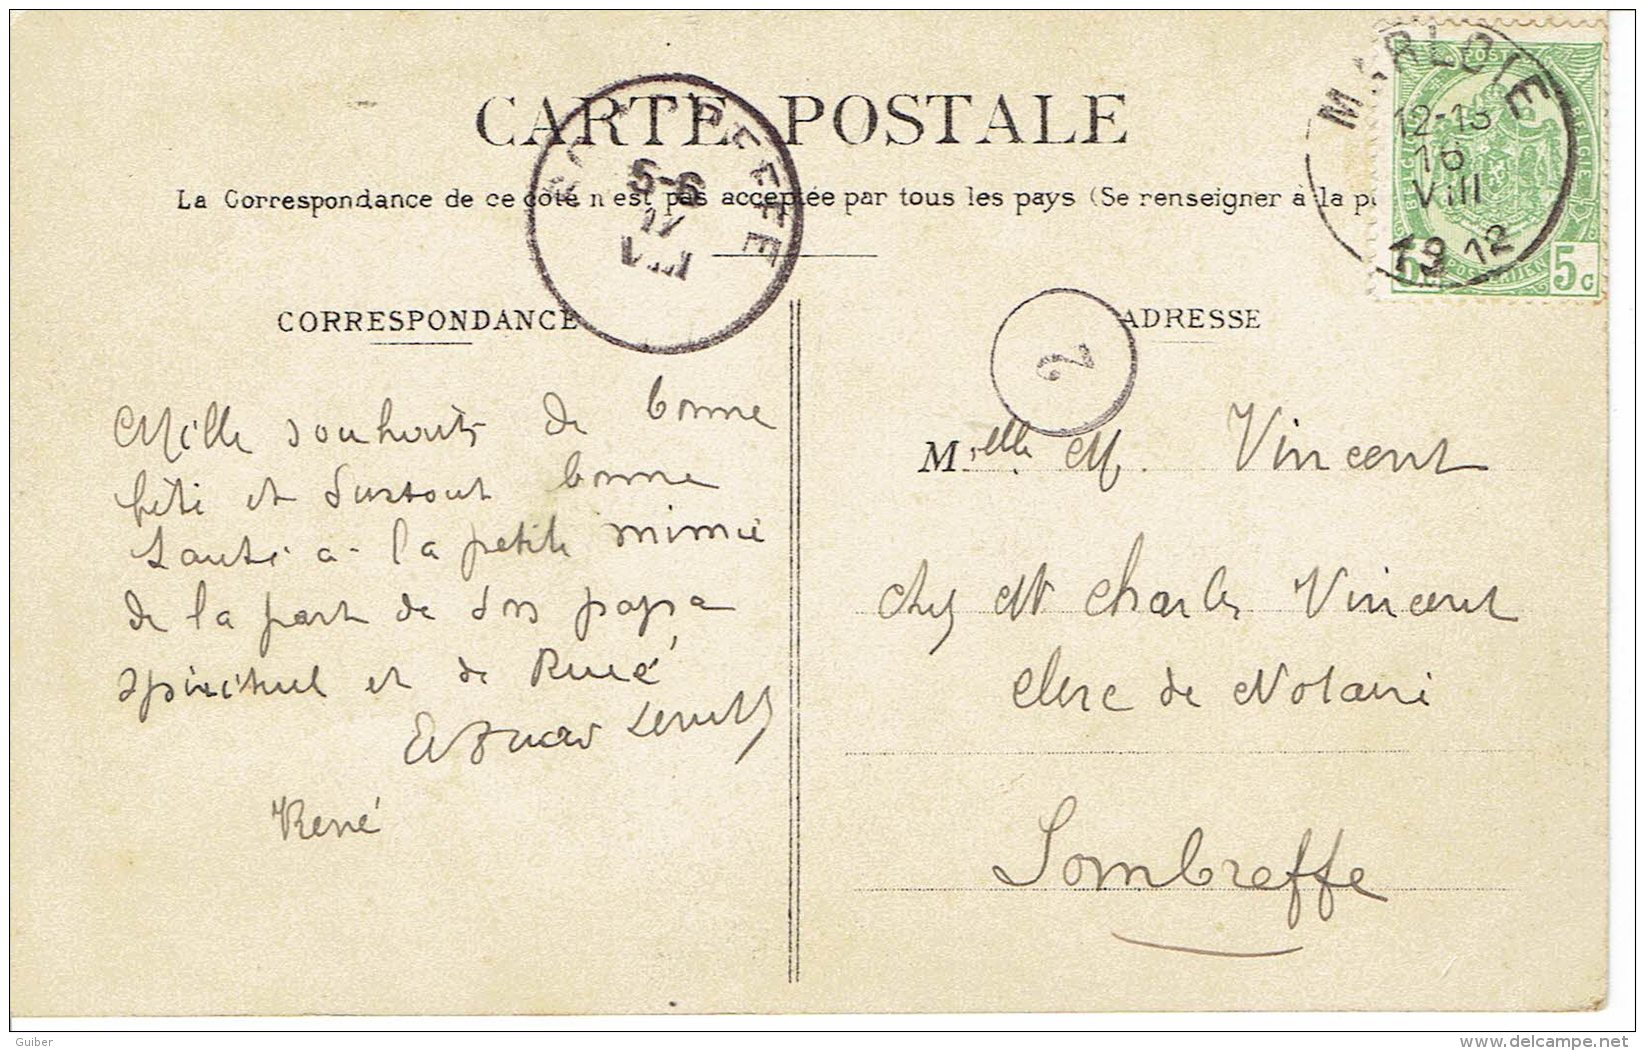 CARTE POSTALE
La Correspondance de ce côté n'est pas acceptée par tous les pays (Se renseigner à la
CORRESPONDANCE
ADRESSE
MARLOIE
12-13
16
VIII
1912
POSTES
BELGIQUE
BELGIE
POSTERIJEN
5c
BREFFE
5-6
17
VIII
2
Mille souhaits de bonne
fête et surtout bonne
santé à la petite mimie
de la part de son papa
spirituel et de René
Edouard
René
M.elle M. Vincent
chez Mr Charles Vincent
clerc de Notaire
Sombreffe
Guiber
www.delcampe.net